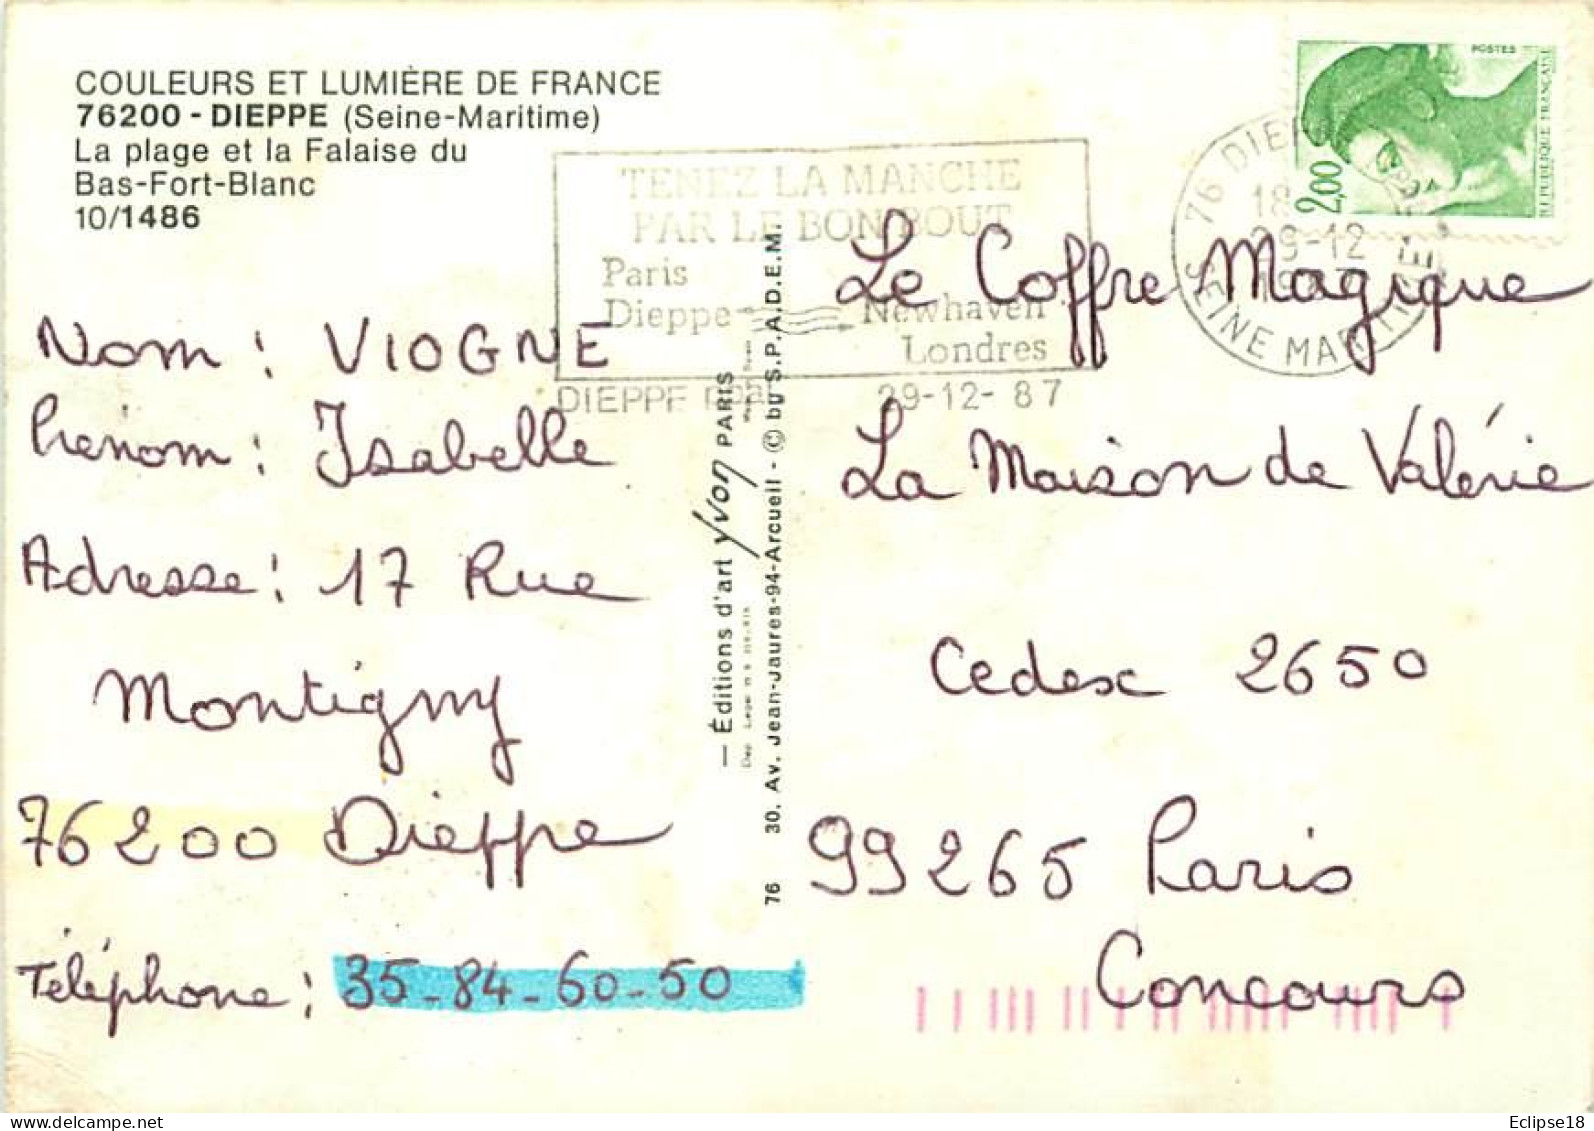 COULEURS ET LUMIÈRE DE FRANCE
76200 - DIEPPE (Seine-Maritime)
La plage et la Falaise du
Bas-Fort-Blanc
10/1486
Nom : VIOGNE
Prénom : Isabelle
Adresse : 17 Rue
Montigny
76200 Dieppe
Téléphone : 35-84-60-50
TENEZ LA MANCHE
PAR LE BON BOUT
Paris
Dieppe Newhaven
Londres
DIEPPE 29-12-87
— Éditions d'art yvon PARIS
76 30. Av. Jean-Jaures-94-Arcueil - © by S.P.A.D.E.M.
POSTES
2,00
REPUBLIQUE FRANÇAISE
76 DIEPPE
18
29-12
SEINE MARITIME
Le Coffre Magique
La Maison de Valérie
Cedex 2650
99265 Paris
Concours
Eclipse18